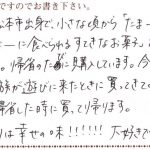 ですのでお書き下さい。
本市出身で、小さな頃から「たまー
ーに食べられるすてきなお菓子。
。帰省のた　に購入しています。今
族が遊びに来たときに買ってきて
帰省した時に買って帰ります。
は幸せの味!!!!!! 大好きで